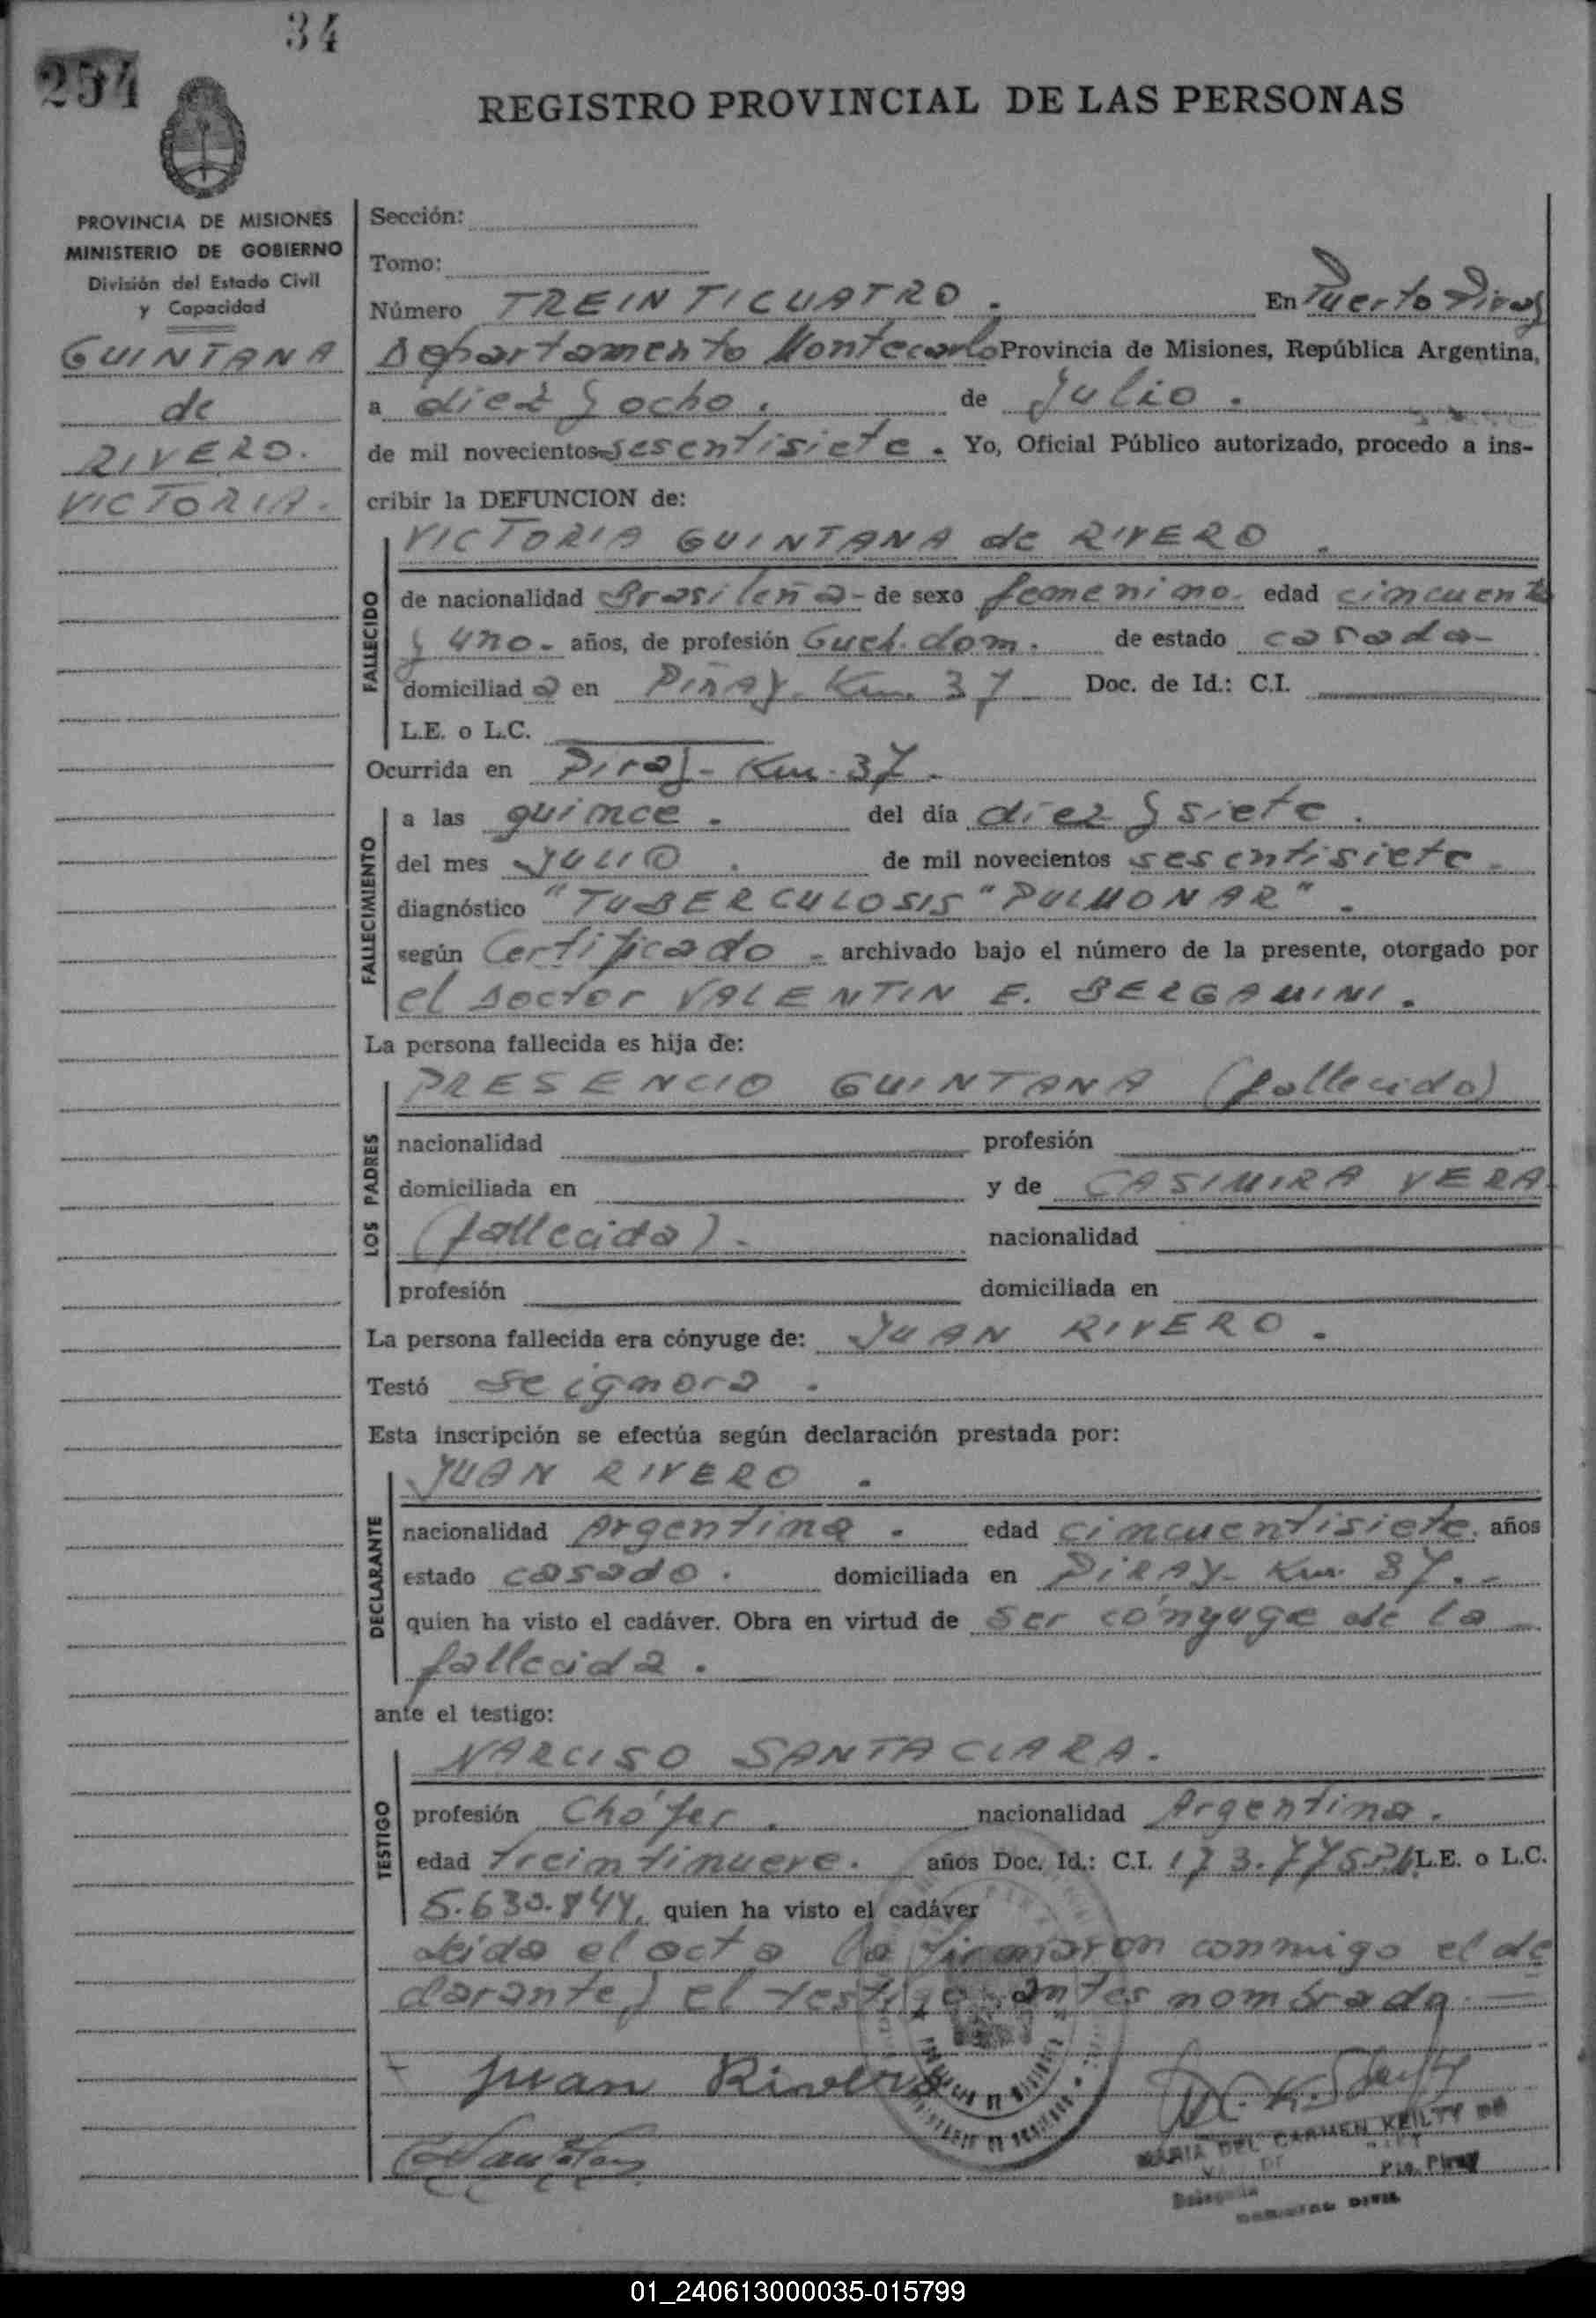 34
254
REGISTRO PROVINCIAL DE LAS PERSONAS
PROVINCIA DE MISIONES
MINISTERIO DE GOBIERNO
División del Estado Civil
y Capacidad
GUINTANA
de
RIVERO.
VICTORIA.
Sección:
Tomo:
Número TREINTICUATRO. En Puerto Piray
Departamento Montecarlo Provincia de Misiones, República Argentina,
a diez y ocho. de Julio.
de mil novecientos sesentisiete. Yo, Oficial Público autorizado, procedo a ins-
cribir la DEFUNCION de:
VICTORIA GUINTANA de RIVERO.
FALLECIDO
de nacionalidad Brasileña- de sexo femenino. edad cincuenta
y uno- años, de profesión Queh. dom. de estado casada-
domiciliad a en PIRAY- Km. 37 Doc. de Id.: C.I.
L.E. o L.C.
Ocurrida en Piray- Km. 37.
FALLECIMIENTO
a las quince. del día diez y siete.
del mes JULIO. de mil novecientos sesentisiete.
diagnóstico "TUBERCULOSIS "PULMONAR".
según Certificado - archivado bajo el número de la presente, otorgado por
el doctor VALENTIN E. BERGAMINI.
La persona fallecida es hija de:
LOS PADRES
PRESENCIO GUINTANA (fallecido)
nacionalidad profesión
domiciliada en y de CASIMIRA VERA.
(fallecida).- nacionalidad
profesión domiciliada en
La persona fallecida era cónyuge de: JUAN RIVERO.
Testó se ignora.
Esta inscripción se efectúa según declaración prestada por:
DECLARANTE
JUAN RIVERO.
nacionalidad Argentina. edad cincuentisiete. años
estado casado. domiciliada en PIRAY- Km. 37.-
quien ha visto el cadáver. Obra en virtud de ser cónyuge de la
fallecida.
ante el testigo:
TESTIGO
NARCISO SANTACLARA.
profesión Chófer. nacionalidad Argentina.
edad treintinueve. años Doc. Id.: C.I. L.E. o L.C.
5.630.844, quien ha visto el cadáver
Leida el acta la firmaron conmigo el de
clarante y el testigo antes nombrado
Juan Rivero
MARIA DEL CARMEN KEILTY DE
Pto. Piray
Delegada
01_240613000035-015799